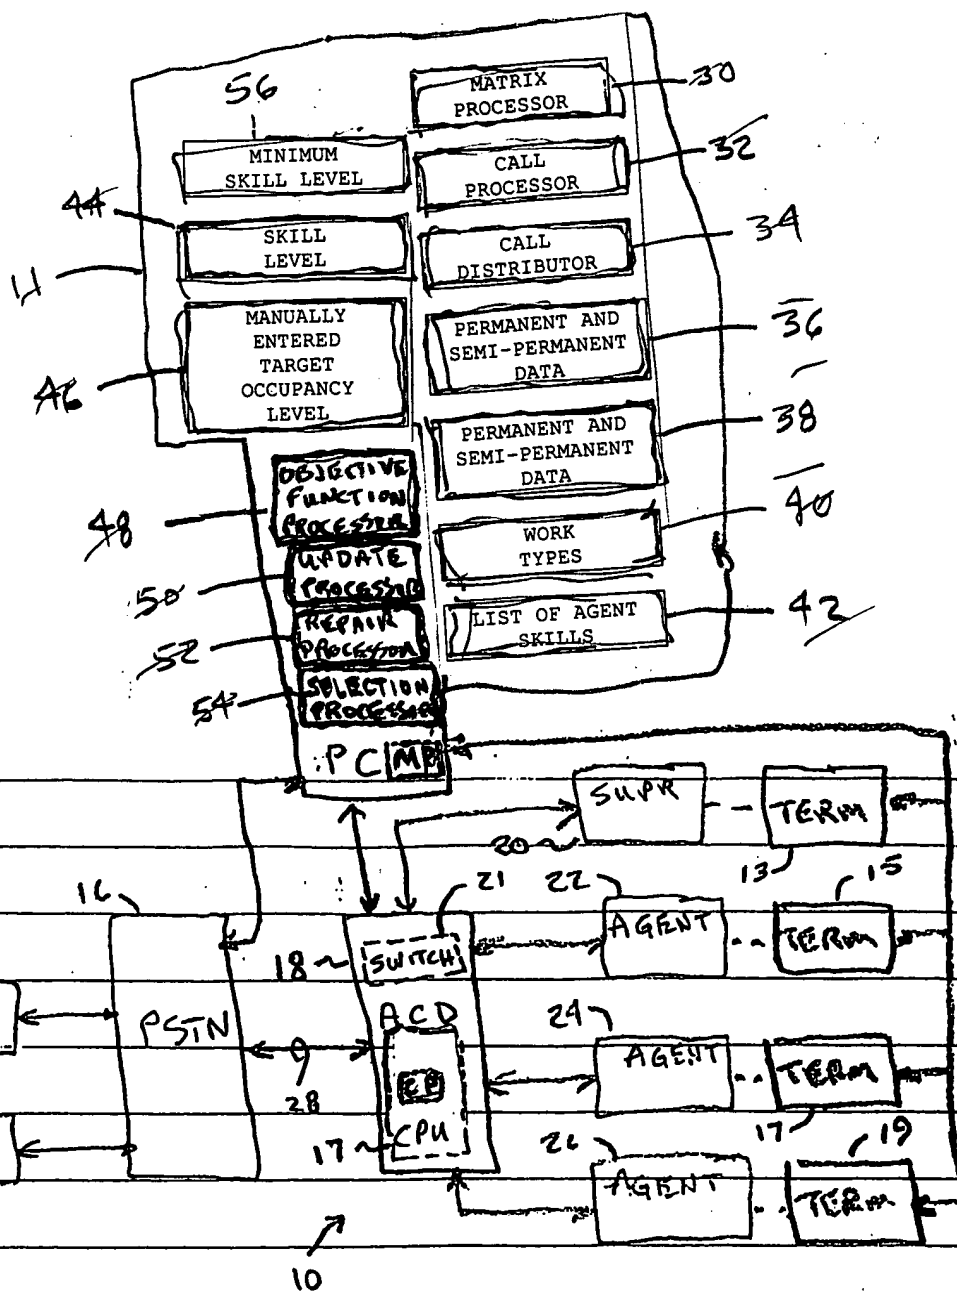 56
MATRIX
PROCESSOR
30
MINIMUM
SKILL LEVEL
CALL
PROCESSOR
32
44
SKILL
LEVEL
CALL
DISTRIBUTOR
34
11
MANUALLY
ENTERED
TARGET
OCCUPANCY
LEVEL
46
PERMANENT AND
SEMI-PERMANENT
DATA
36
PERMANENT AND
SEMI-PERMANENT
DATA
38
OBJECTIVE
FUNCTION
PROCESSOR
48
WORK
TYPES
40
UPDATE
PROCESSOR
50
LIST OF AGENT
SKILLS
42
REPAIR
PROCESSOR
52
SELECTION
PROCESSOR
54
PC MP
SUPR
TERM
20
13
16
21
22
15
AGENT
TERM
18
SWITCH
PSTN
ACD
24
AGENT
TERM
28
CP
CPU
17
17
26
19
AGENT
TERM
10